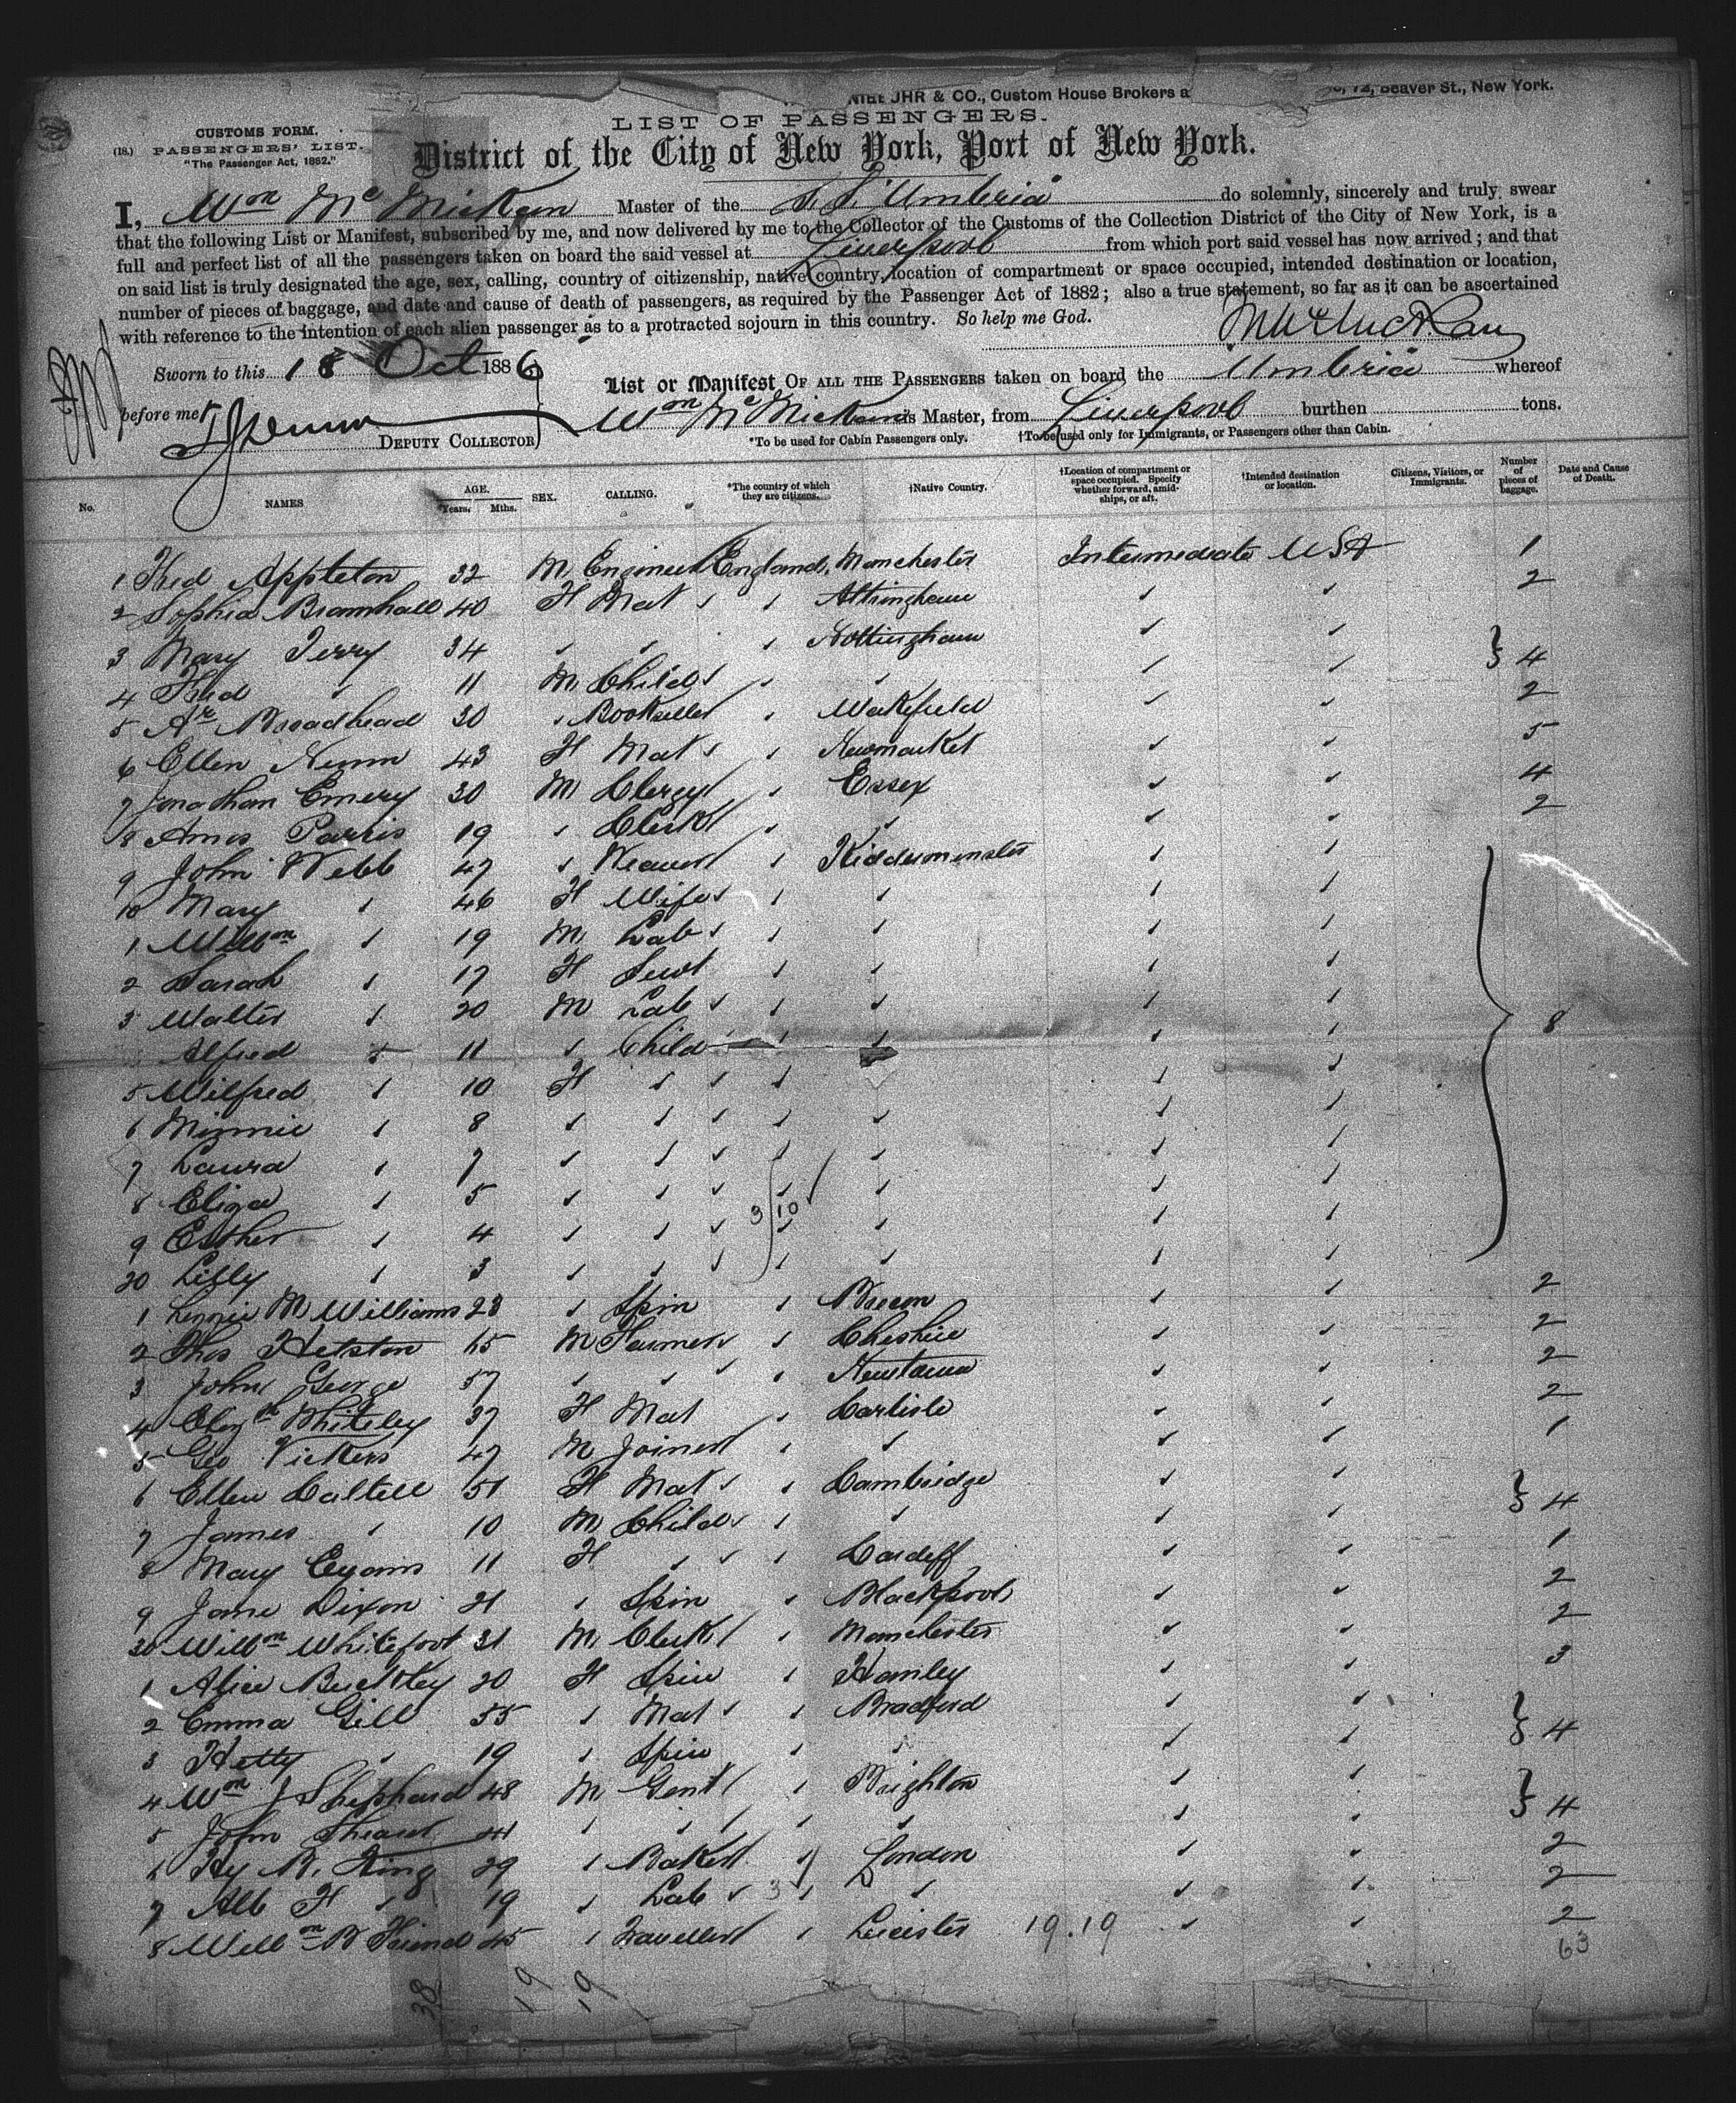 JHR & CO., Custom House Brokers a
Beaver St., New York.
LIST OF PASSENGERS.
CUSTOMS FORM.
(18.) PASSENGERS' LIST.
"The Passenger Act, 1882."
District of the City of New York, Port of New York.
I, Wm McMickan Master of the S.S. Umbria do solemnly, sincerely and truly swear
that the following List or Manifest, subscribed by me, and now delivered by me to the Collector of the Customs of the Collection District of the City of New York, is a
full and perfect list of all the passengers taken on board the said vessel at Liverpool from which port said vessel has now arrived; and that
on said list is truly designated the age, sex, calling, country of citizenship, native country, location of compartment or space occupied, intended destination or location,
number of pieces of baggage, and date and cause of death of passengers, as required by the Passenger Act of 1882; also a true statement, so far as it can be ascertained
with reference to the intention of each alien passenger as to a protracted sojourn in this country. So help me God.
Sworn to this 18 Oct 1886
List or Manifest OF ALL THE PASSENGERS taken on board the Umbria whereof
before me
DEPUTY COLLECTOR
Wm McMickan is Master, from Liverpool burthen tons.
*To be used for Cabin Passengers only. †To be used only for Immigrants, or Passengers other than Cabin.
No. NAMES AGE. Years. Mths. SEX. CALLING. *The country of which they are citizens. †Native Country. †Location of compartment or space occupied. Specify whether forward, amidships, or aft. †Intended destination or location. Citizens, Visitors, or Immigrants. Number of pieces of baggage. Date and Cause of Death.
1 Fred Appleton 32 M Engineer England Manchester Intermediate USA 1
2 Sophia Bramhall 40 F Mat " " Altringham " " 2
3 Mary Terry 34 " " " Nottingham " "
4 Fred " 11 M Child " " " " " 4
5 Ar Broadhead 30 " Bookseller " Wakefield " " 2
6 Ellen Nunn 43 F Mat " " Newmarket " " 5
7 Jonathan Emery 30 M Clergy " Essex " " 4
8 Amos Parris 19 " Clerk " " " " 2
9 John Webb 47 " Weaver " Kidderminster " "
10 Mary " 46 F Wife " " " " "
1 Willm " 19 M Lab " " " " "
2 Sarah " 17 F Servt " " " "
3 Walter " 20 M Lab " " " " "
Alfred " 11 " Child " " " " 8
5 Wilfred " 10 F " " " " "
6 Minnie " 8 " " " " " " "
7 Laura " 7 " " " " " " "
8 Eliza " 5 " " " 3 10 " " "
9 Esther " 4 " " " " " " "
20 Lilly " 3 " " " " " " "
1 Lizzie M Williams 23 " Spin " Brecon " " 2
2 Thos Hetston 65 M Farmer " Cheshire " " 2
3 John George 57 " " " " Newtown " " 2
4 Elizth Whiteley 37 F Mat " Carlisle " " 2
5 Geo Vickers 47 M Joiner " " " " 1
6 Ellen Caltell 51 F Mat " " Cambridge " "
7 James " 10 M Child " " " " " 4
8 Mary Evans 11 F " " " Cardiff " " 1
9 Jane Dixon 21 " Spin " Blackpool " " 2
30 Willm Whitefoot 31 M Clerk " Manchester " " 2
1 Alice Buckley 20 F Spin " Hanley " " 3
2 Emma Gill 55 " Mat " " Bradford " "
3 Hetty " 19 " Spin " " " " 4
4 Wm J Shephard 48 M Gent " Brighton " "
5 John 41 " " " " " " " 4
6 Hy R. King 29 " Baker " London " " 2
7 Alb F " 19 " Lab " 3 " " " " 2
8 Willm R Friend 45 " Traveller " Leicester 19.19 " " 2
63
38 19 19